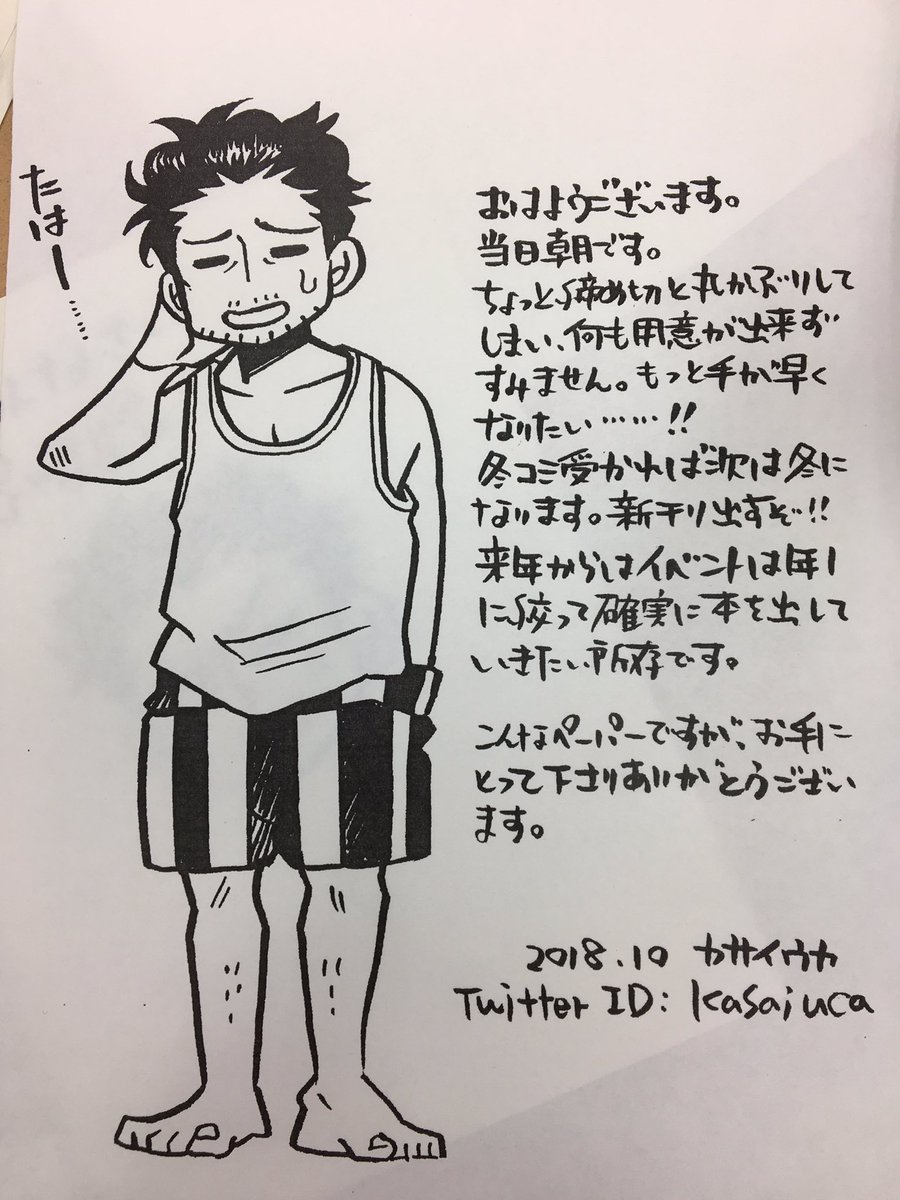 たはー……
おはようございます。
当日朝です。
ちょっと締め切と丸かぶりして
しまい、何も用意が出来ず
すみません。もっと手が早く
なりたい……!!
冬コミ受かれば次は冬に
なります。新刊出すぞ!!
来年からはイベントは年1
に絞って確実に本を出して
いきたい所存です。
こんなペーパーですが、お手に
とって下さりありがとうござい
ます。
2018.10 カサイウカ
Twitter ID: kasaiuca